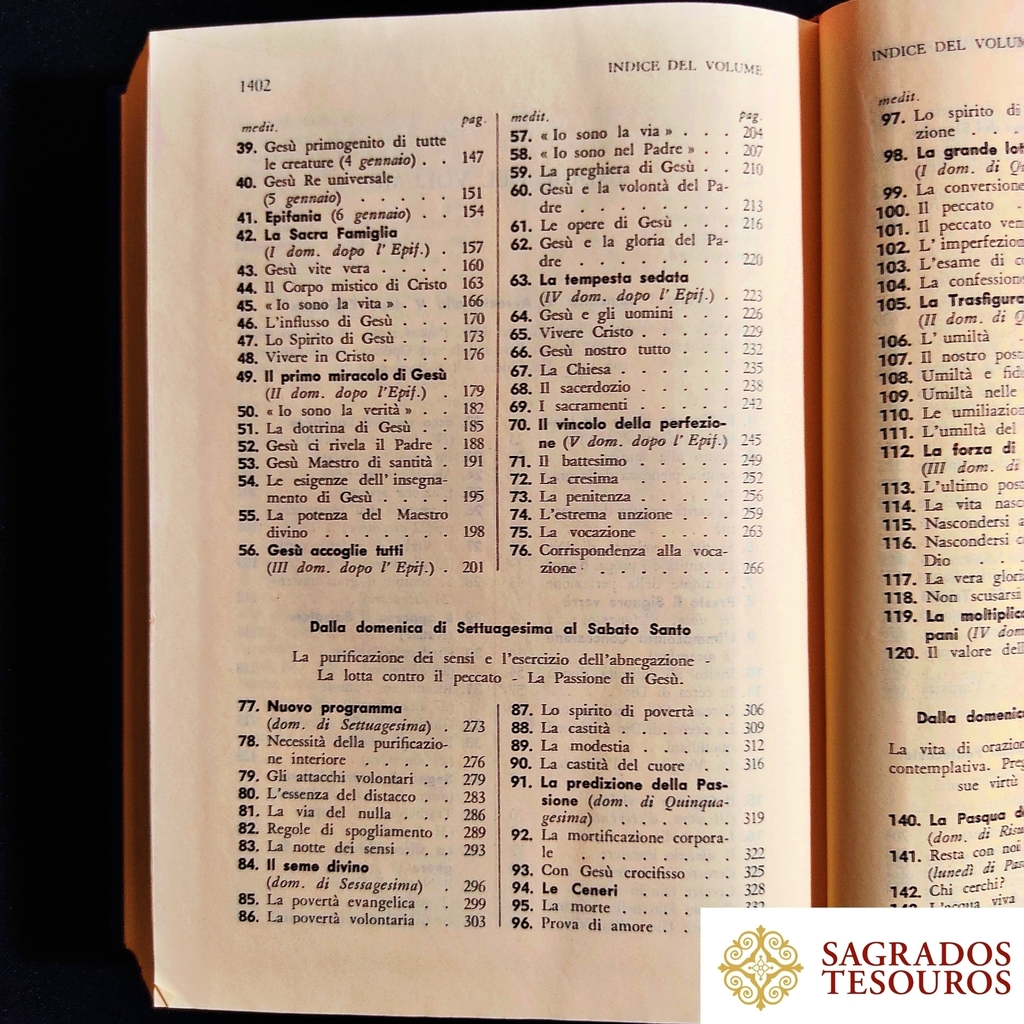 1402
INDICE DEL VOLUME
medit. pag.
39. Gesù primogenito di tutte
le creature (4 gennaio) . . 147
40. Gesù Re universale
(5 gennaio) . . . . . 151
41. Epifania (6 gennaio) . . 154
42. La Sacra Famiglia
(I dom. dopo l'Epif.) . 157
43. Gesù vite vera . . . . 160
44. Il Corpo mistico di Cristo 163
45. « Io sono la vita » . . . 166
46. L'influsso di Gesù . . . 170
47. Lo Spirito di Gesù . . . 173
48. Vivere in Cristo . . . . 176
49. Il primo miracolo di Gesù
(II dom. dopo l'Epif.) . 179
50. « Io sono la verità » . . 182
51. La dottrina di Gesù . . 185
52. Gesù ci rivela il Padre . 188
53. Gesù Maestro di santità . 191
54. Le esigenze dell'insegna-
mento di Gesù . . . . 195
55. La potenza del Maestro
divino . . . . . . . 198
56. Gesù accoglie tutti
(III dom. dopo l'Epif.) . 201
medit. pag.
57. « Io sono la via » . . . 204
58. « Io sono nel Padre » . . 207
59. La preghiera di Gesù . . 210
60. Gesù e la volontà del Pa-
dre . . . . . . . . 213
61. Le opere di Gesù . . . 216
62. Gesù e la gloria del Pa-
dre . . . . . . . . 220
63. La tempesta sedata
(IV dom. dopo l'Epif.) . 223
64. Gesù e gli uomini . . . 226
65. Vivere Cristo . . . . . 229
66. Gesù nostro tutto . . . 232
67. La Chiesa . . . . . . 235
68. Il sacerdozio . . . . . 238
69. I sacramenti . . . . . 242
70. Il vincolo della perfezio-
ne (V dom. dopo l'Epif.) 245
71. Il battesimo . . . . . 249
72. La cresima . . . . . 252
73. La penitenza . . . . . 256
74. L'estrema unzione . . . 259
75. La vocazione . . . . . 263
76. Corrispondenza alla voca-
zione . . . . . . . 266
Dalla domenica di Settuagesima al Sabato Santo
La purificazione dei sensi e l'esercizio dell'abnegazione -
La lotta contro il peccato - La Passione di Gesù.
77. Nuovo programma
(dom. di Settuagesima) . 273
78. Necessità della purificazio-
ne interiore . . . . . 276
79. Gli attacchi volontari . . 279
80. L'essenza del distacco . . 283
81. La via del nulla . . . 286
82. Regole di spogliamento . 289
83. La notte dei sensi . . . 293
84. Il seme divino
(dom. di Sessagesima) . 296
85. La povertà evangelica . . 299
86. La povertà volontaria . . 303
87. Lo spirito di povertà . . 306
88. La castità . . . . . . 309
89. La modestia . . . . . 312
90. La castità del cuore . . 316
91. La predizione della Pas-
sione (dom. di Quinqua-
gesima) . . . . . . 319
92. La mortificazione corpora-
le . . . . . . . . 322
93. Con Gesù crocifisso . . 325
94. Le Ceneri . . . . . 328
95. La morte . . . . .
96. Prova di amore . .
INDICE DEL
medit.
97. Lo spirito di
zione . . .
98. La grande
(I dom. di
99. La conversione
100. Il peccato
101. Il peccato
102. L'
103. L'esame di
104. La
105. La
(II dom. di
106. L'umiltà
107. Il nostro
108. Umiltà e
109. Umiltà nelle
110. Le
111. L'umiltà del
112. La forza di
(III dom. di
113. L'ultimo
114. La vita
115. Nascondersi
116. Nascondersi
Dio . .
117. La vera
118. Non scusarsi
119. La
pani (IV
120. Il valore
Dalla
La vita di
contemplativa.
sue virtù
140. La Pasqua
(dom. di
141. Resta con noi
(lunedì di
142. Chi cerchi?
L'acqua viva
SAGRADOS
TESOUROS